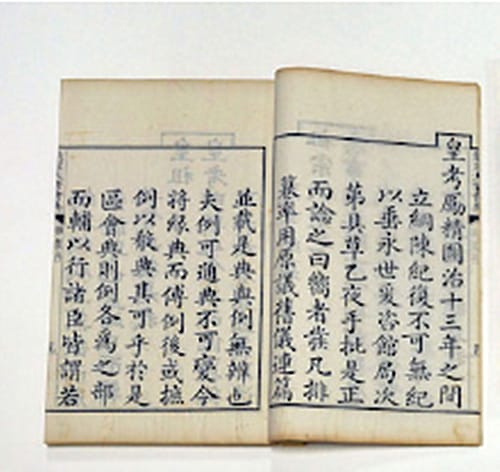 皇考勵精圖治十三年之間
立綱陳紀復不可無紀
以垂永世爰咨館局次
第具草乙夜手批是正
而諭之曰嚮者發凡排
纂率用原議舊儀連篇
並載是典與例無辨也
夫例可通典不可變今
將緣典而傅例後或摭
例以殽典其可乎於是
區會典則例各為之部
而輔以行諸臣皆謂若